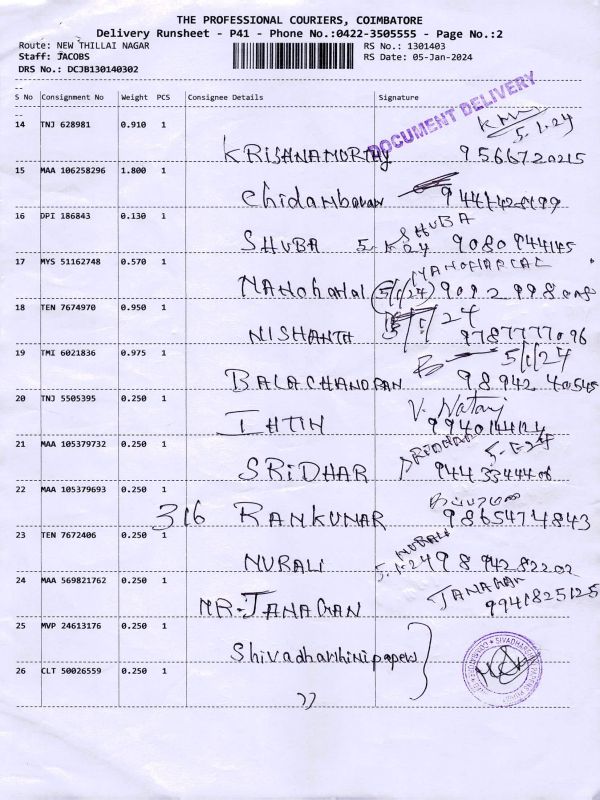 THE PROFESSIONAL COURIERS, COIMBATORE
Delivery Runsheet - P41 - Phone No.:0422-3505555 - Page No.:2
Route: NEW THILLAI NAGAR RS No.: 1301403
Staff: JACOBS RS Date: 05-Jan-2024
DRS No.: DCJB130140302
S No Consignment No Weight PCS Consignee Details Signature
DOCUMENT DELIVERY
5.1.24
14 TNJ 628981 0.910 1 KRISHNAMORTHY 9566720215
15 MAA 106258296 1.800 1 Chidambaram
16 DPI 186843 0.130 1 SHUBA 5.1.24 SHUBA
17 MYS 51162748 0.570 1 MANOHALAL 5/1/24 MANOHARLAL
18 TEN 7674970 0.950 1 NISHANTH 5/1/24 9787777096
19 TMI 6021836 0.975 1 BALACHANDRAN 5/1/24 9894240545
20 TNJ 5505395 0.250 1 V. Nataraj
21 MAA 105379732 0.250 1 SRIDHAR SRIDHAR 5.1.24
22 MAA 105379693 0.250 1 316 RAMKUMAR 9865474843
23 TEN 7672406 0.250 1 MURALI MURALI 5.1.24 9894282202
24 MAA 569821762 0.250 1 MR.JANARAN JANARAN 9941825125
25 MVP 24613176 0.250 1 Shivadharshini papers
26 CLT 50026559 0.250 1 ,,